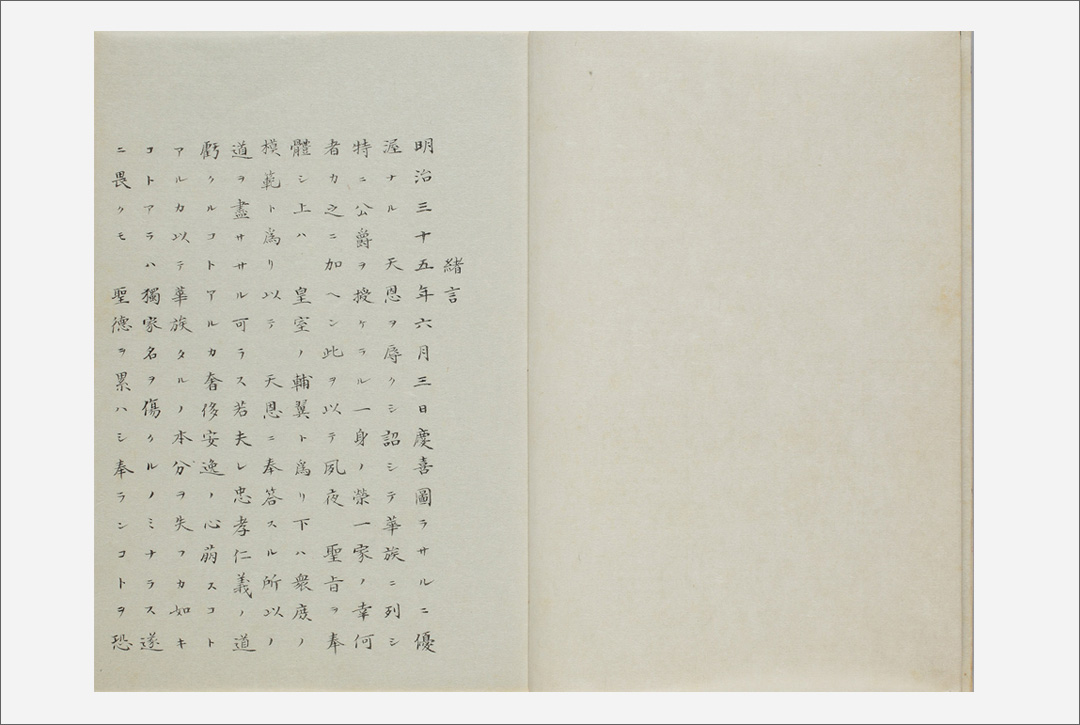 緒言
明治三十五年六月三日慶喜圖ラサルニ優
渥ナル　天恩ヲ辱クシ詔シテ華族ニ列シ
特ニ公爵ヲ授ケラル一身ノ榮一家ノ幸何
者カ之ニ加ヘン此ヲ以テ夙夜　聖旨ヲ奉
體シ上ハ　皇室ノ輔翼ト爲リ下ハ衆庶ノ
模範ト爲リ以テ　天恩ニ奉答スル所以ノ
道ヲ盡ササル可ラス若夫レ忠孝仁義ノ道
虧クルコトアルカ奢侈安逸ノ心萠スコト
アルカ以テ華族タルノ本分ヲ失フカ如キ
コトアラハ獨家名ヲ傷クルノミナラス遂
ニ畏クモ　聖德ヲ累ハシ奉ランコトヲ恐